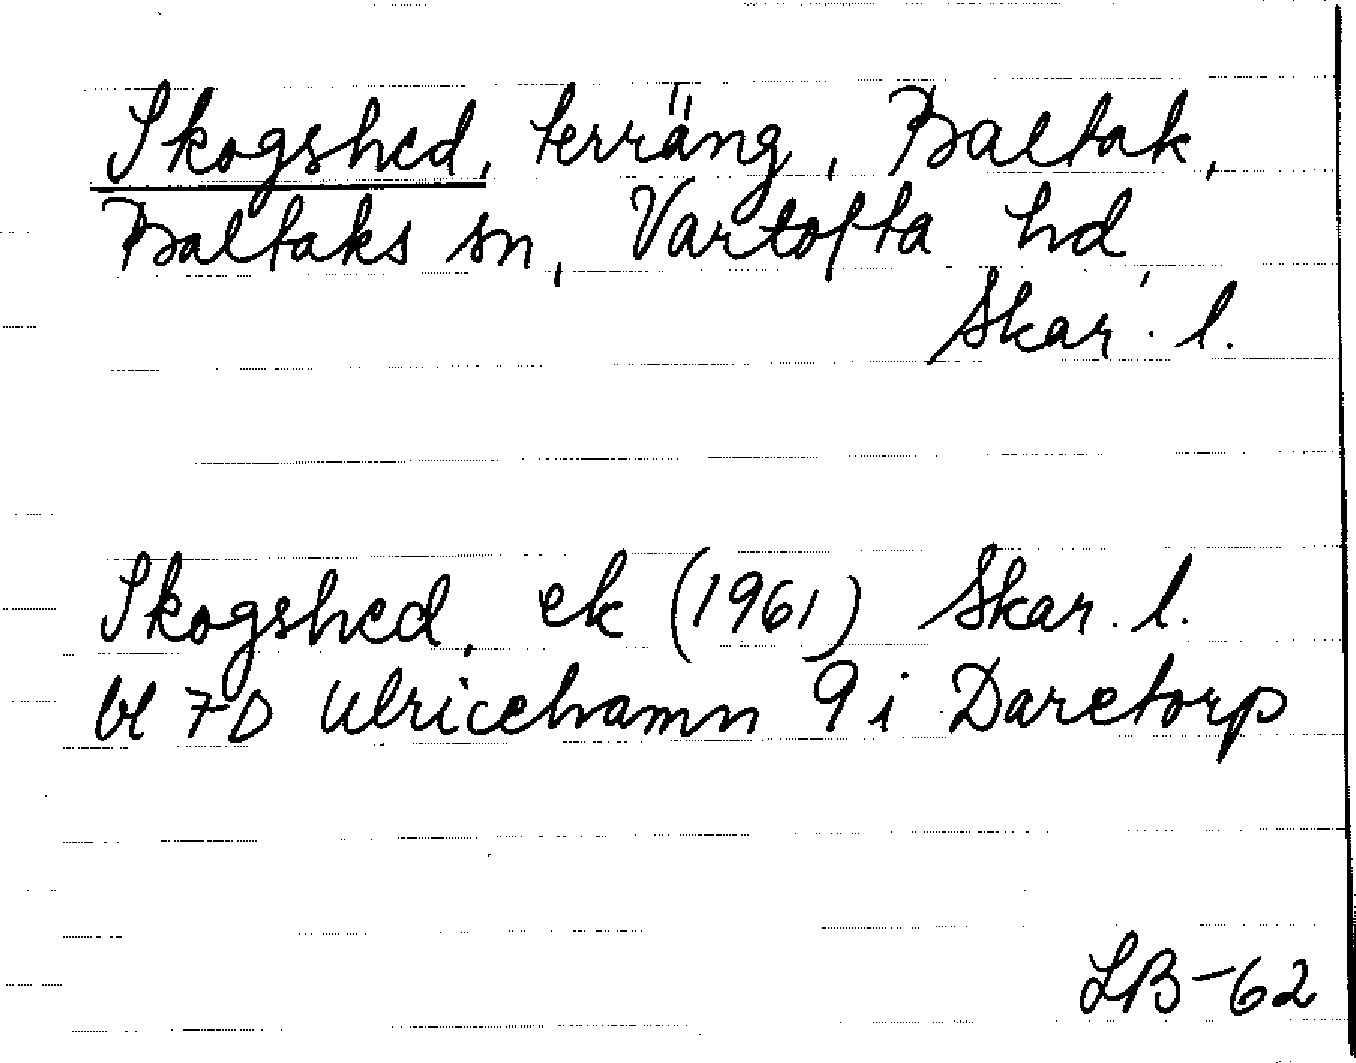 Skogshed, terräng, Baltak,
Baltaks sn, Vartofta hd,
Skar. l.
Skogshed, ek (1961) Skar. l.
bl 7D Ulricehamn 9 i Daretorp
LB-62